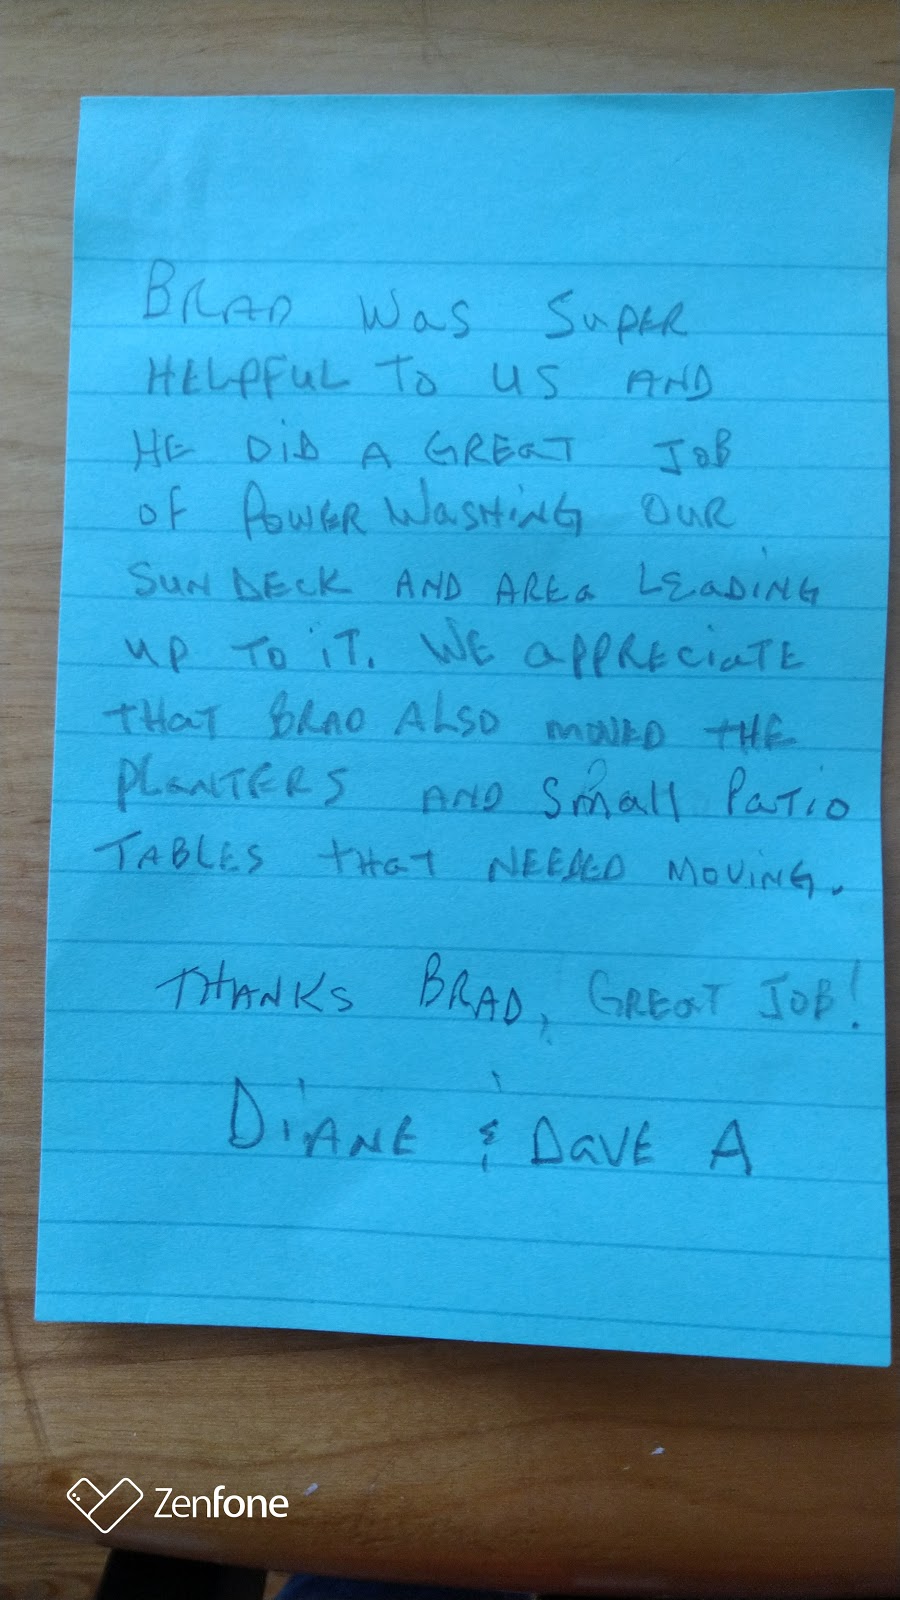 BRAD WAS SUPER
HELPFUL TO US AND
HE DID A GREAT JOB
OF POWER WASHING OUR
SUN DECK AND AREA LEADING
UP TO IT. WE APPRECIATE
THAT BRAD ALSO MOVED THE
PLANTERS AND Small PATIO
TABLES THAT NEEDED MOVING.
THANKS BRAD, GREAT JOB!
DIANE & DAVE A
Zenfone